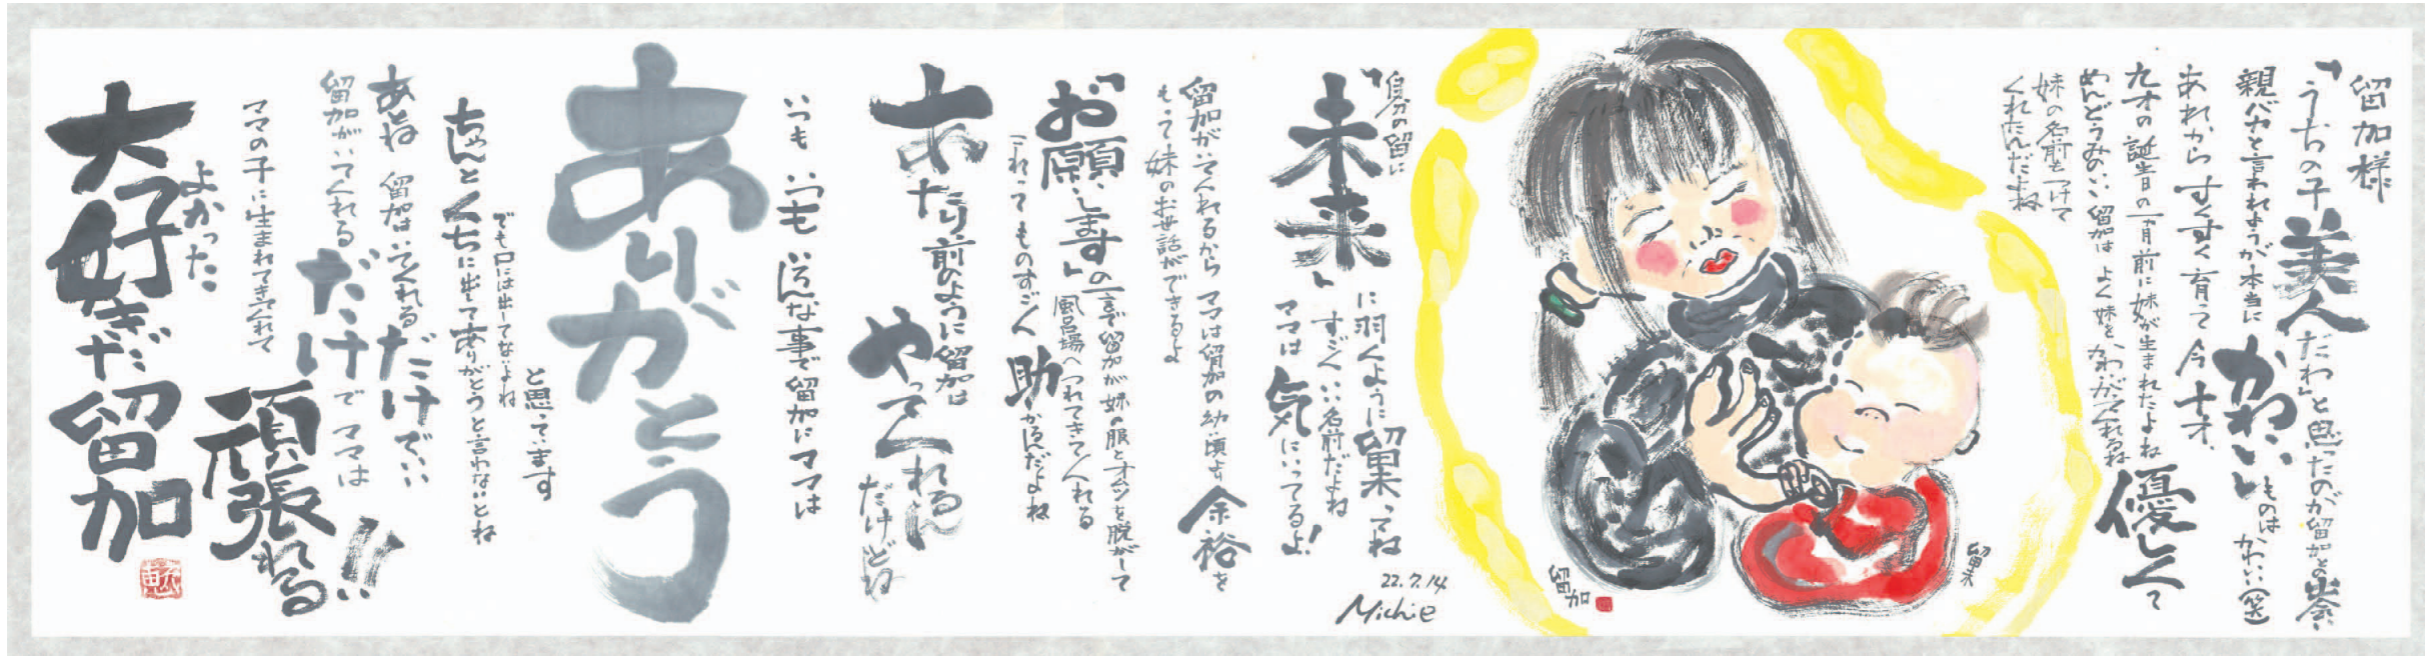 留加様
「うちの子美人だわ」と思ったのが留加との出会い
親バカと言われようが本当にかわいいものはかわい(笑)
あれからすくすく育って今十才、
九才の誕生日の一ヶ月前に妹が生まれたよね
めんどうみのいい留加はよく妹をかわいがってくれるね
優しくて
妹の名前をつけて
くれたんだよね
留果
留加
「自分の留に
未来」に羽ばたくように留果ってね
すごくいい名前だよね
ママは気にいってるよ!
22.7.14
Michie
留加がいてくれるからママは留加の幼い頃より余裕を
もって妹のお世話ができるよ
「お願いします」の一言で留加が妹の服とオムツを脱がして
風呂場へつれてきてくれる
これってものすごく助かるんだよね
あたり前のように留加は
やってくれるん
だけどね
いつもいつもいろんな事で留加にママは
ありがとう
と思っています
でも口には出してないよね
ちゃんとくちに出してありがとうと言わないとね
あとね留加はいてくれるだけでいい
留加がいてくれるだけでママは
頑張れる!!
ママの子に生まれてきてくれて
よかった
大好きだ留加